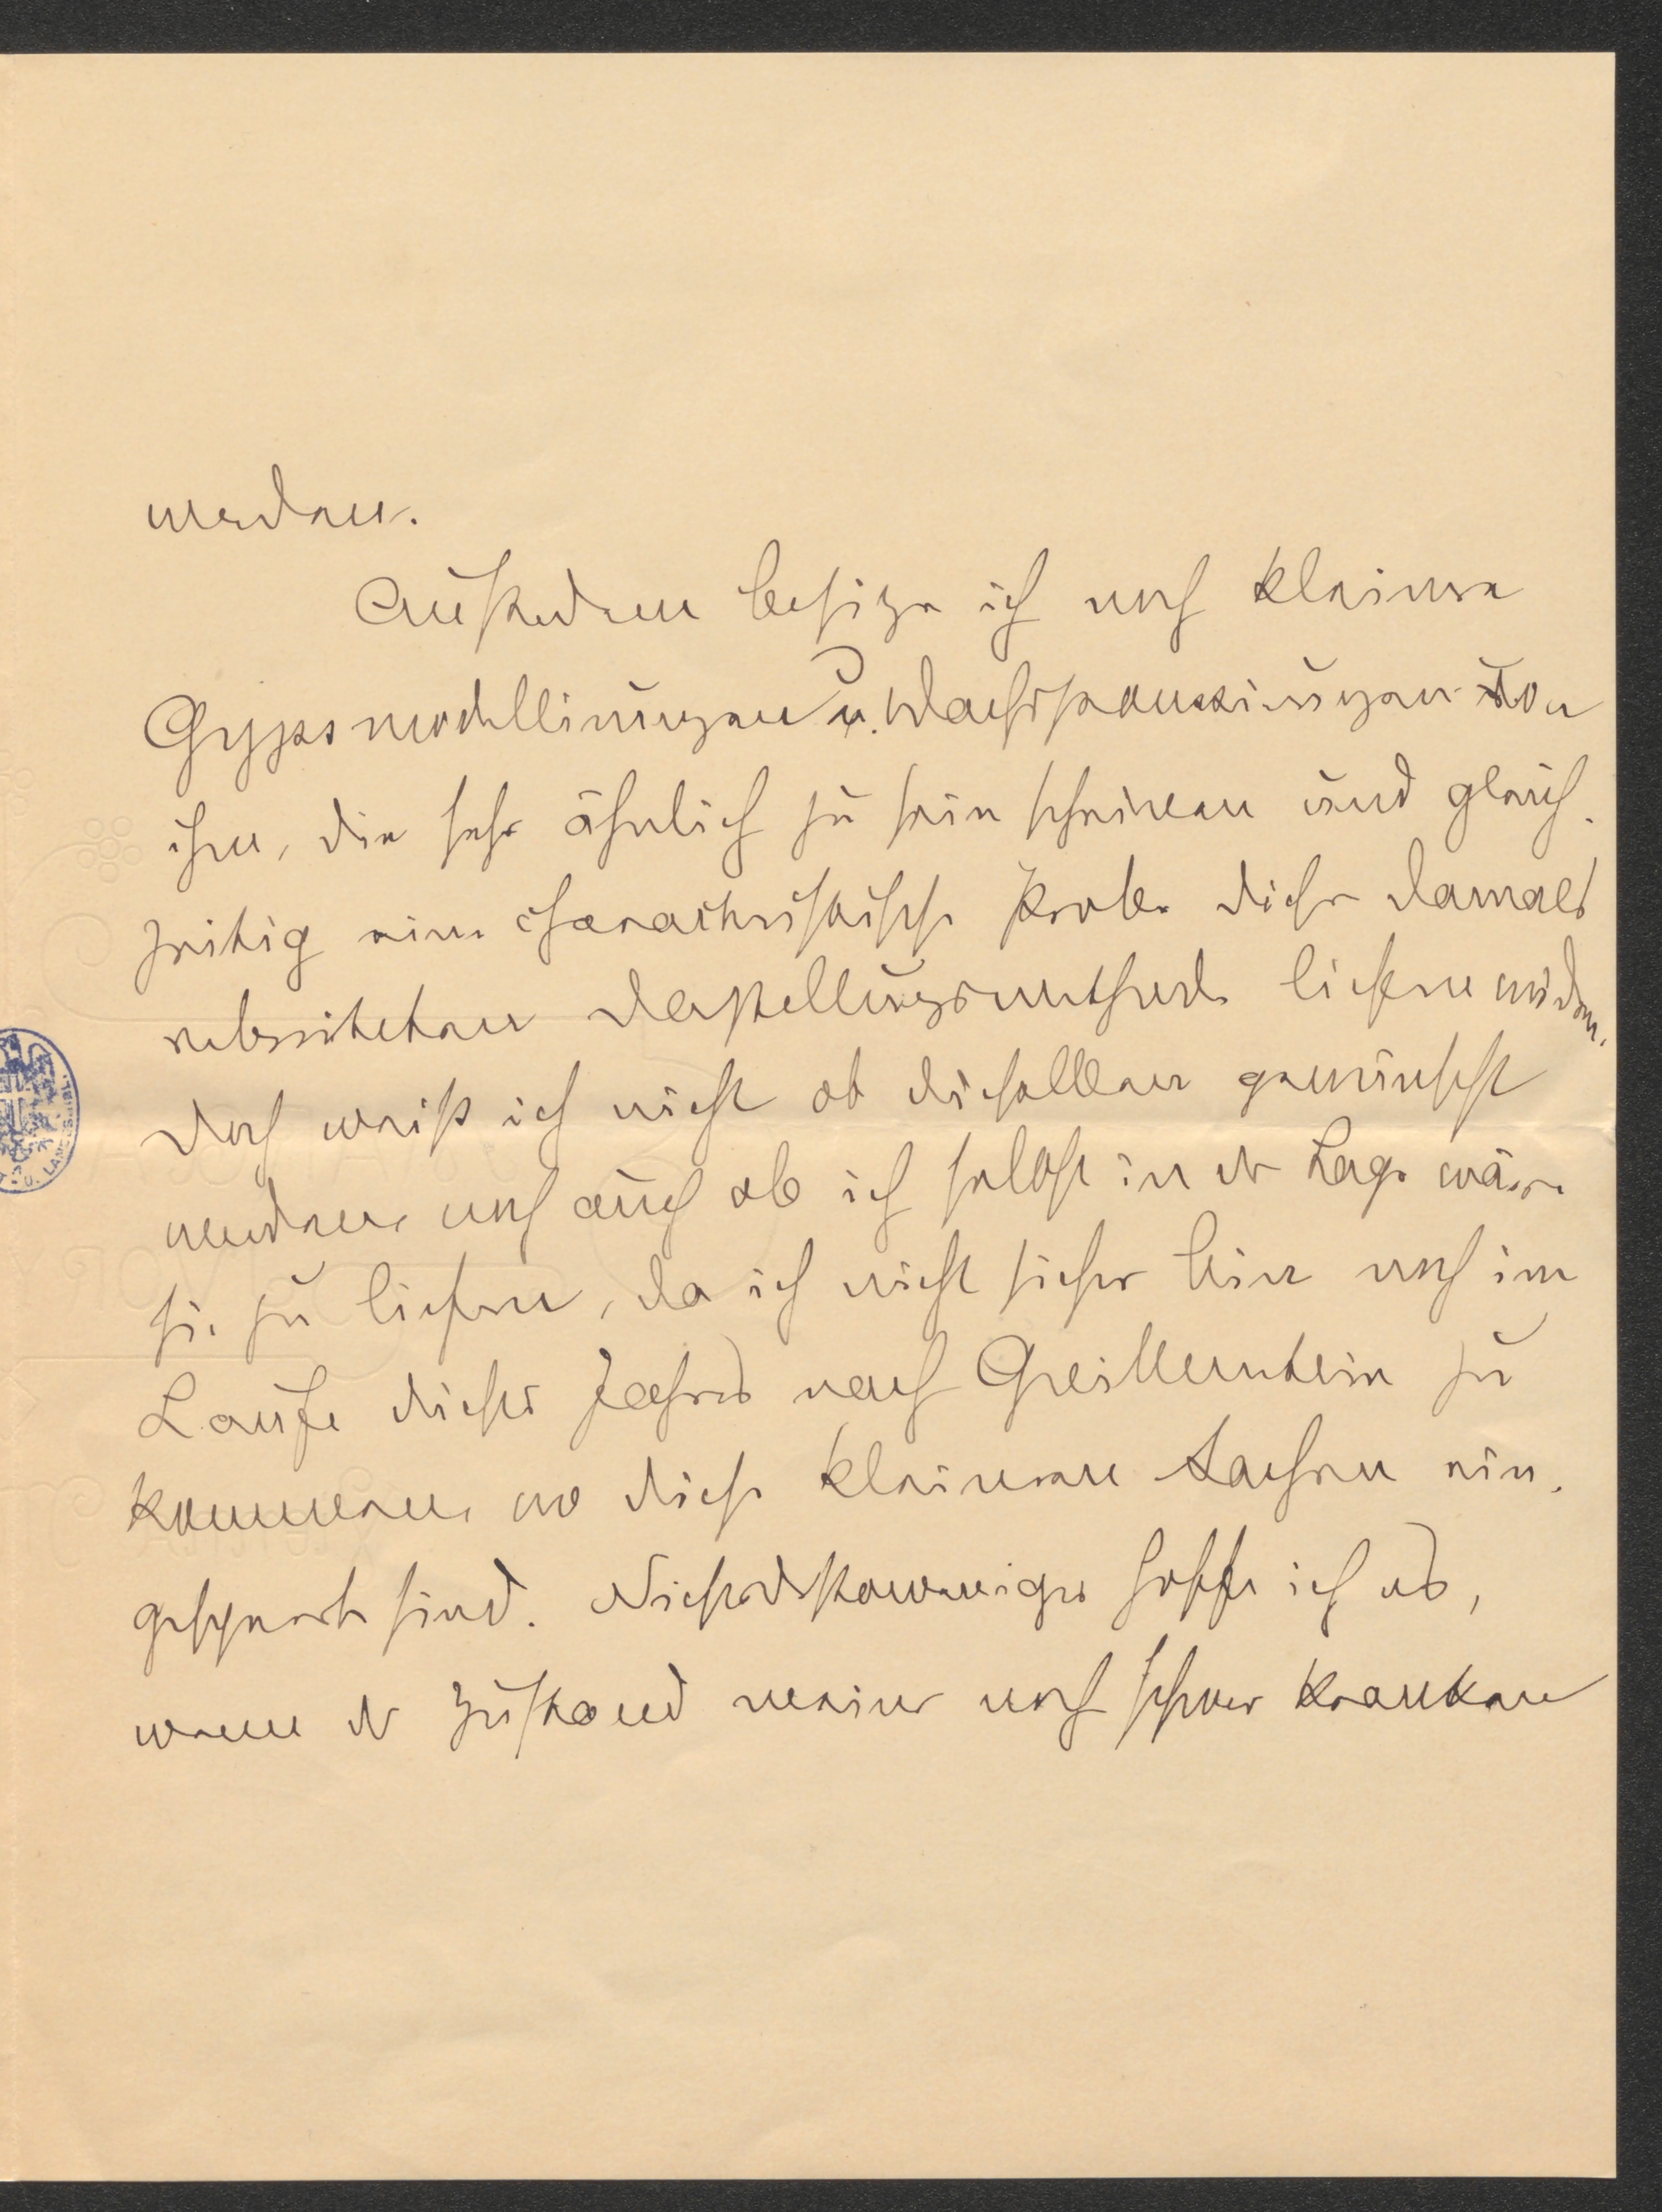 werden.
Außerdem besize ich noch kleinere
Gypsmodellirungen u. Wachspoussirungen von
ihm, die sehr ähnlich zu sein scheinen und gleich-
zeitig eine characteristische Probe dieser damals
verbreiteten Darstellungsmethode liefern würden.
Doch weiß ich nicht ob dieselben gewünscht
werden, noch auch ob ich selbst in der Lage wäre
sie zu liefern, da ich nicht sicher bin noch im
Laufe dieses Jahres nach Greillenstein zu
kommen, wo diese kleineren Sachen ein-
gesperrt sind. Nichtsdestoweniger hoffe ich es,
wenn der Zustand meiner noch schwer kranken